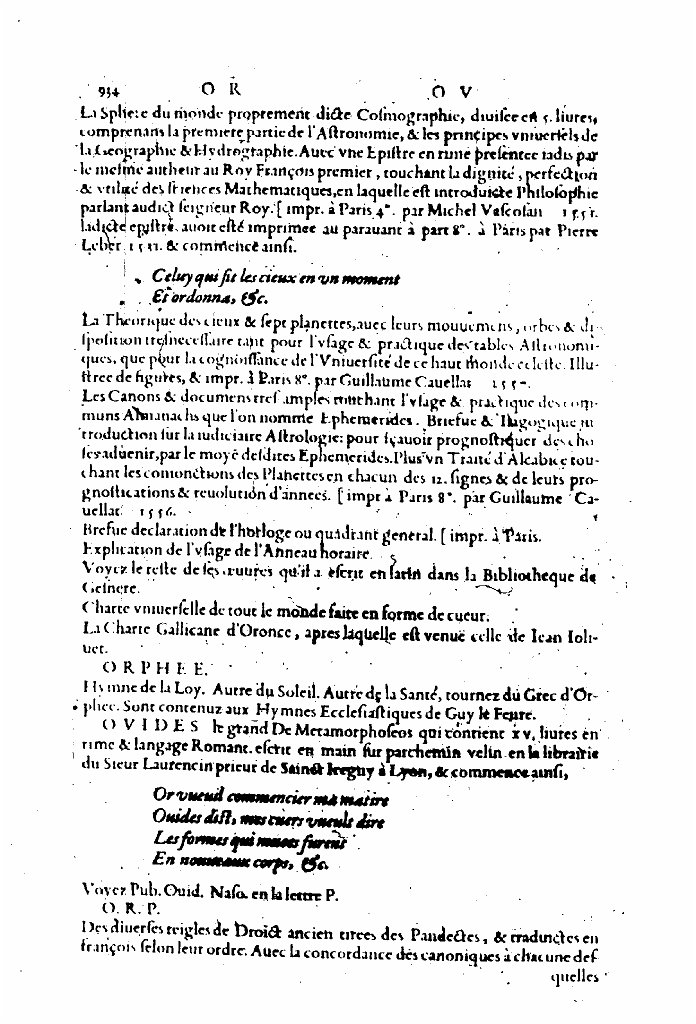 934 O R O V
La Sphere du monde proprement dicte Cosmographie, diuisee en 5. liures,
comprenans la premiere partie de l'Astronomie, & les principes vniuersels de
la Geographie & Hydrographie. Auec vne Epistre en rime presentee iadis par
le mesme autheur au Roy François premier, touchant la dignité, perfection
& vtilité des sciences Mathematiques, en laquelle est introduicte Philosophie
parlant audict seigneur Roy. [ impr. à Paris 4°. par Michel Vascosan 1551.
ladicte epistre auoit esté imprimee au parauant à part 8°. à Paris par Pierre
Leber 1531. & commence ainsi.
Celuy qui fit les cieux en vn moment
Et ordonna, &c.
La Theorique des cieux & sept planettes, auec leurs mouuemens, orbes & di-
sposition tresnecessaire tant pour l'vsage & practique des tables Astronomi-
ques, que pour la cognoissance de l'Vniuersité de ce haut monde celeste. Illu-
stree de figures, & impr. à Paris 8°. par Guillaume Cauellat 1557.
Les Canons & documens tresamples touchant l'vsage & practique des com-
muns Almanachs que l'on nomme Ephemerides. Briefue & Isagogique in
troduction sur la iudiciaire Astrologie: pour sçauoir prognostiquer des cho
ses aduenir, par le moyé desdites Ephemerides. Plus vn Traité d'Alcabice tou-
chant les conionctions des Planettes en chacun des 12. signes & de leurs pro-
gnostications & reuolution d'annees. [ impr à Paris 8°. par Guillaume Ca-
uellat 1556.
Brefue declaration de l'horloge ou quadrant general. [ impr. à Paris.
Explication de l'vsage de l'Anneau horaire.
Voyez le reste de ses œuures qu'il a escrit en latin dans la Bibliotheque de
Gesnere.
Charte vniuerselle de tout le monde faite en forme de cueur.
La Charte Gallicane d'Oronce, apres laquelle est venuë celle de Iean Ioli-
uet.
O R P H E E.
Hymne de la Loy. Autre du Soleil. Autre de la Santé, tournez du Grec d'Or-
phee. Sont contenuz aux Hymnes Ecclesiastiques de Guy le Feure.
O V I D E S le grand De Metamorphoseos qui contient xv. liures en
rime & langage Romant. escrit en main sur parchemin velin en la librairie
du Sieur Laurencin prieur de Sainct Iregny à Lyon, & commence ainsi,
Or vueil commencier ma matire
Ouides dist, mes cuers vueuls dire
Les formes qui muees furent
En nouueaux corps, &c.
Voyez Pub. Ouid. Naso. en la lettre P.
O. R. P.
Des diuerses reigles de Droict ancien tirees des Pandectes, & traductes en
françois selon leur ordre. Auec la concordance des canoniques à chacune des
quelles